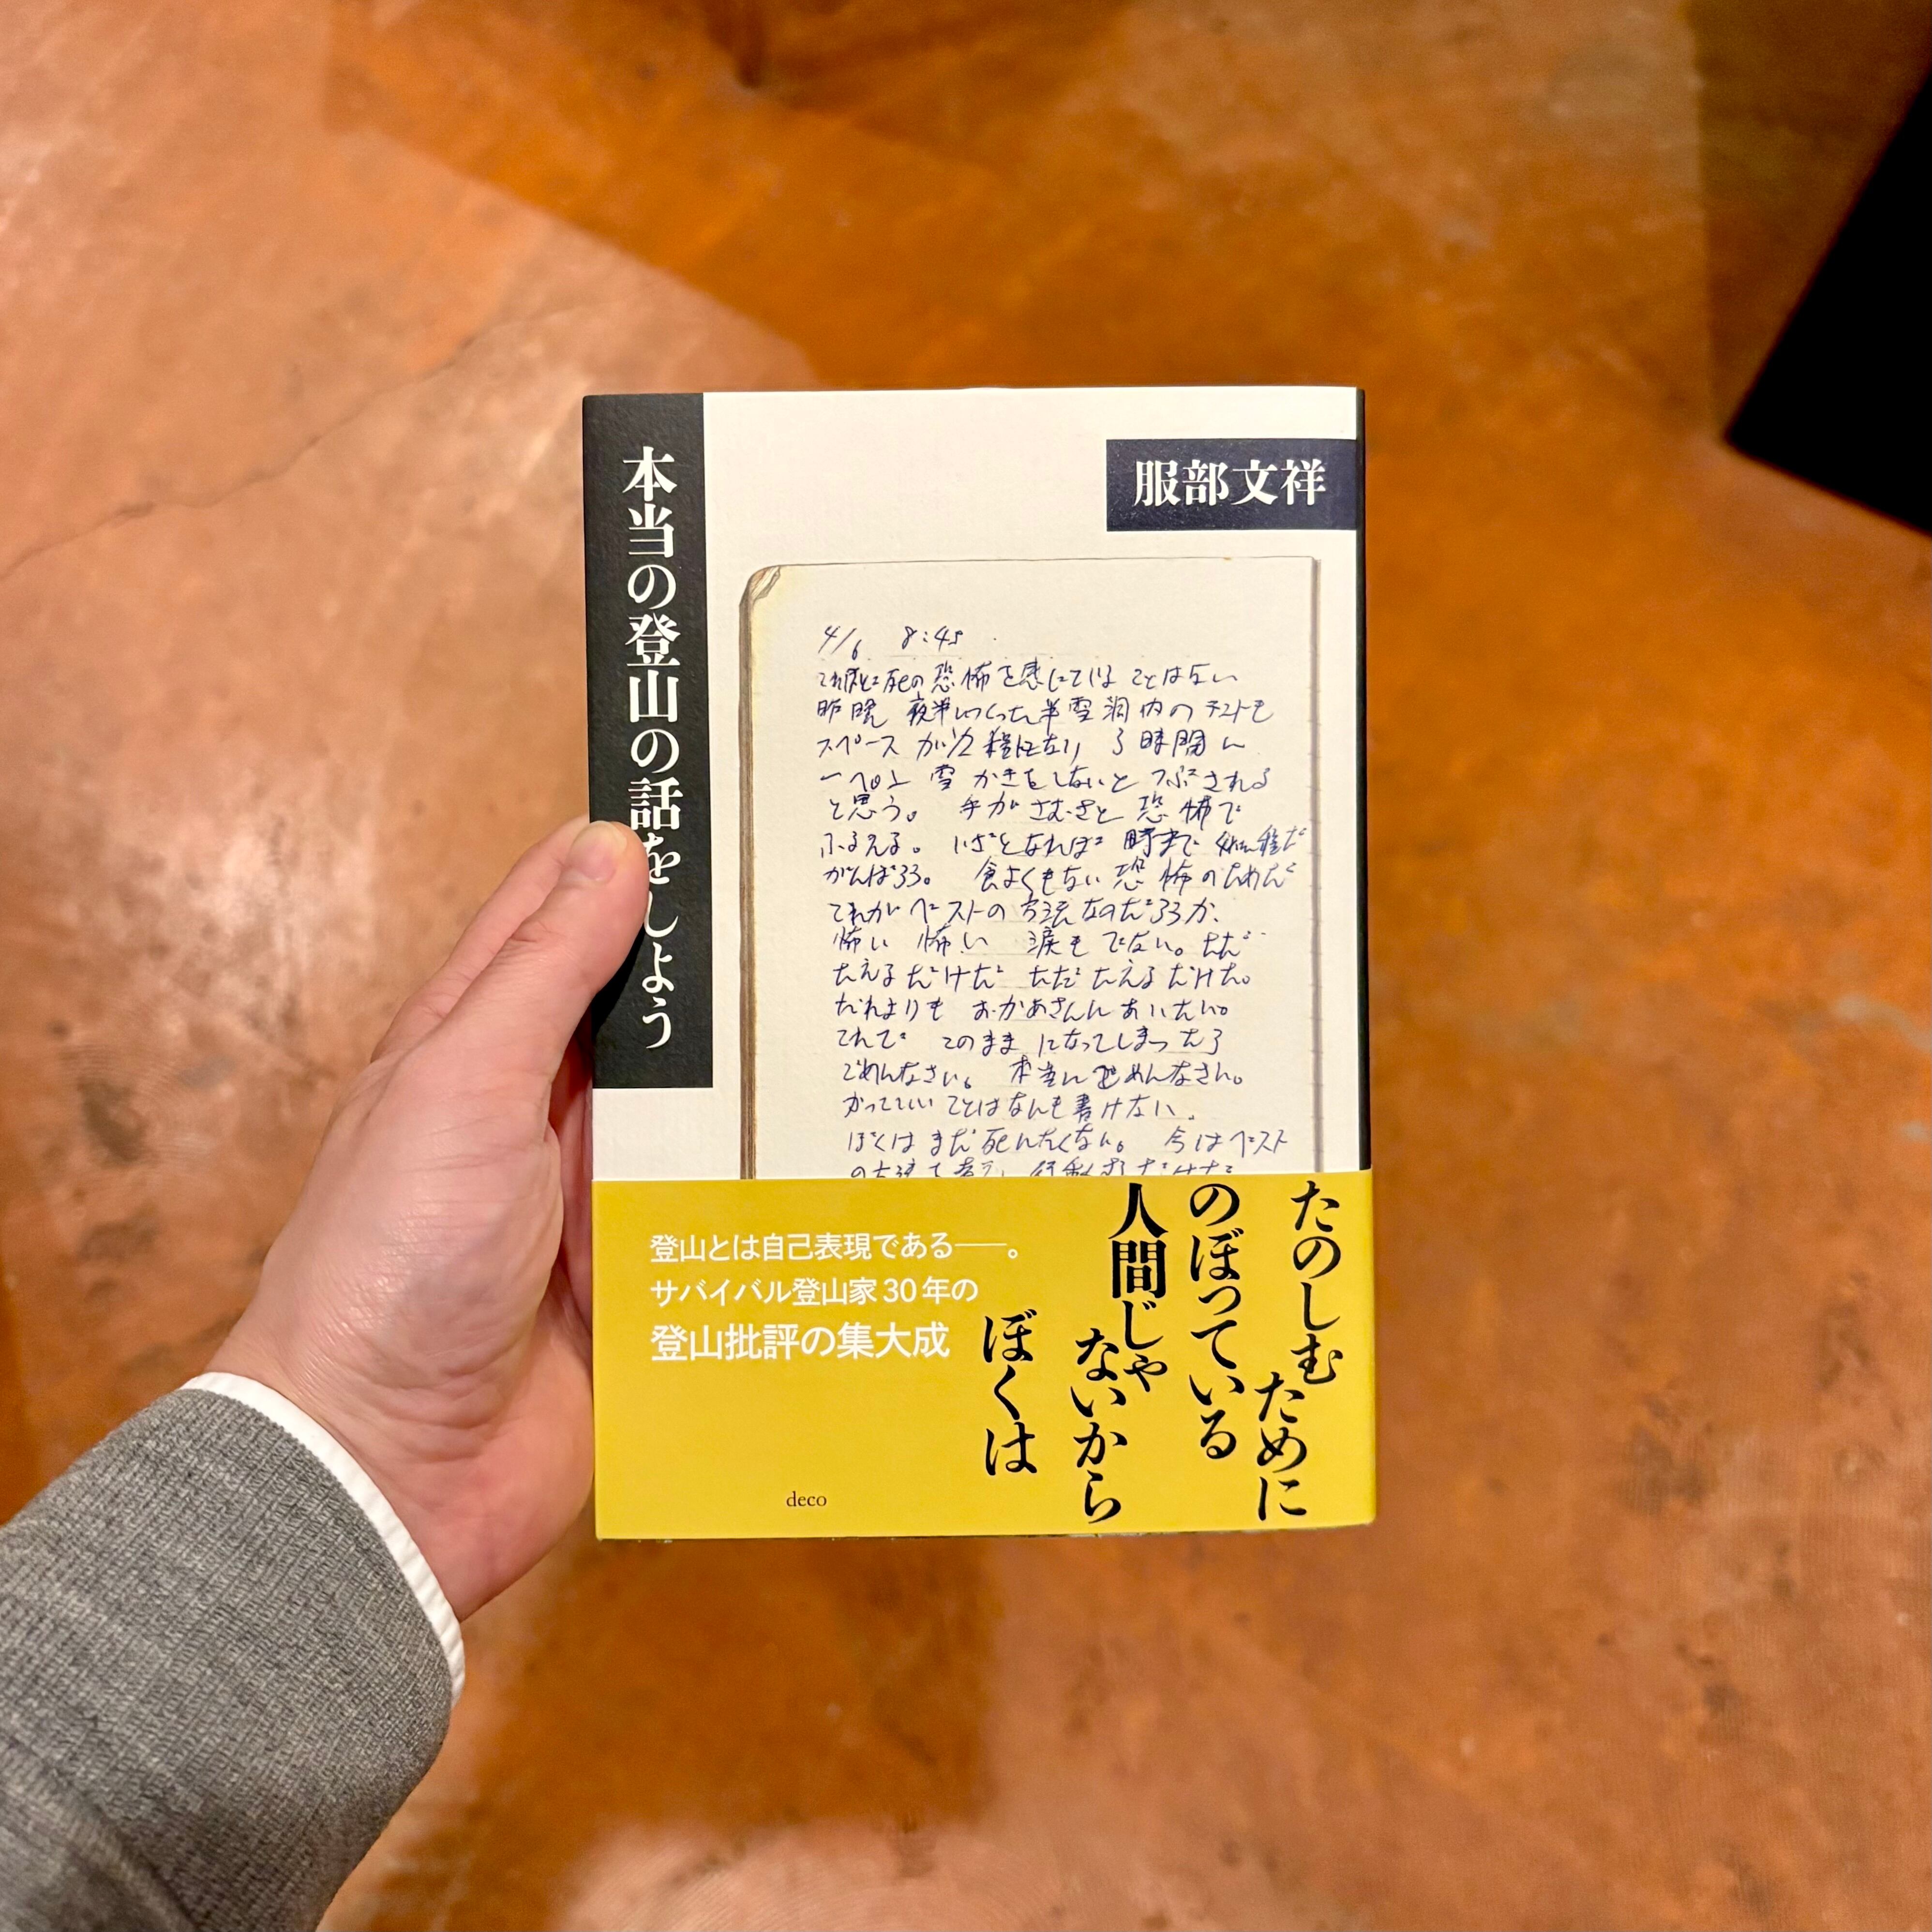 本当の登山の話をしよう
服部文祥
4/6 8:45
これほど死の恐怖を感じていることはない
昨晩 夜半につくった半雪洞内のテントも
スペースが1/2程になり 3時間に
一ぺん 雪かきをしないと つぶされる
と思う。 手がさむさと 恐怖で
ふるえる。 いざとなれば 時まで
がんばろう。 食よくもない 恐怖のためだ
これが ベストの 方法なのだろうか、
怖い 怖い 涙も でない。ただ
たえるだけだ ただ たえるだけだ。
だれよりも おかあさんに あいたい。
これで このまま になってしまったら
ごめんなさい。 本当に ごめんなさい。
かっこいい ことはなんも書けない。
ぼくは まだ 死にたくない。 今はベスト
の方法を考え、行動するだけだ
たのしむ
ために
のぼっている
人間じゃ
ないから
ぼくは
登山とは自己表現である——。
サバイバル登山家30年の
登山批評の集大成
deco